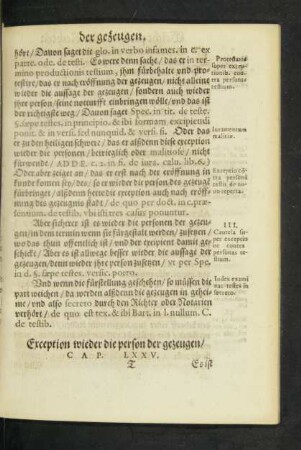 der gezeugen.
hört/ Davon saget die glo. in verbo infames. in c. ex
parte. osde. de testi. Es were denn sache/ das er in ter-
mino productionis testium, ihm fürbehalte und pro-
testire, das er nach eröffnung der gezeugen/ nicht alleine
wieder die aussage der gezeugen/ sondern auch wieder
ihre person/ seine notturfft einbringen wölle/ und das ist
der richtigste weg/ Davon saget Spec. in tit. de teste.
§. sæpe testes, in principio, & ibi formam excipiendi
ponit. & in versi. sed nunquid. & versi. si. Oder das
er zu den heiligen schwere/ das er alsdenn diese exception
wieder die personen/ betrieglich oder maliniose/ nicht
fürwende/ AD D E. c. 2. in fi. de iura. calu. lib. 6.
Oder aber zeiget an/ das er erst nach der eröffnung in
kunde komen sey/ des/ so er wieder die person des gezeugē
fürbringet/ alsdenn hette die exception auch nach eröff-
nung des gezeugnis stadt/ de quo per doct. in c. præ-
sentium. de testib. vbi istres casus ponuntur.
Aber sicherer ist es wieder die personen der gezeu-
gen/ in dem termin wenn sie fürgestalt werden/ zusetzen/
wo das thun öffentlich ist/ und der excipient damit ge-
schickt/ Aber es ist allwege besser wieder die aussage der
gezeugen/ denn wieder ihre person zusetzen/ vt per Spe.
in d. §. sæpe testes. versic. porro.
Und wenn die fürstellung geschehen/ so müssen die
part weichen/ da werden alsdenn die gezeugen in gehei-
me/ und also secreto durch den Richter odr Notarien
verhört/ de quo est tex. & ibi Bart. in l. nullum. C.
de testib.
Protestatio
super excep-
tionib. con-
tra personas
testium.
Iuramentum
maliciæ.
Exceptio cō-
tra personā
testiū de no-
uo reperta.
III.
Cautela su-
per exceptio-
ne contra
personas te-
stium.
Iudex exami-
nat testes in
secreto.
Exception wieder die person der gezeugen/
CAP. LXXV.
T
Es ist